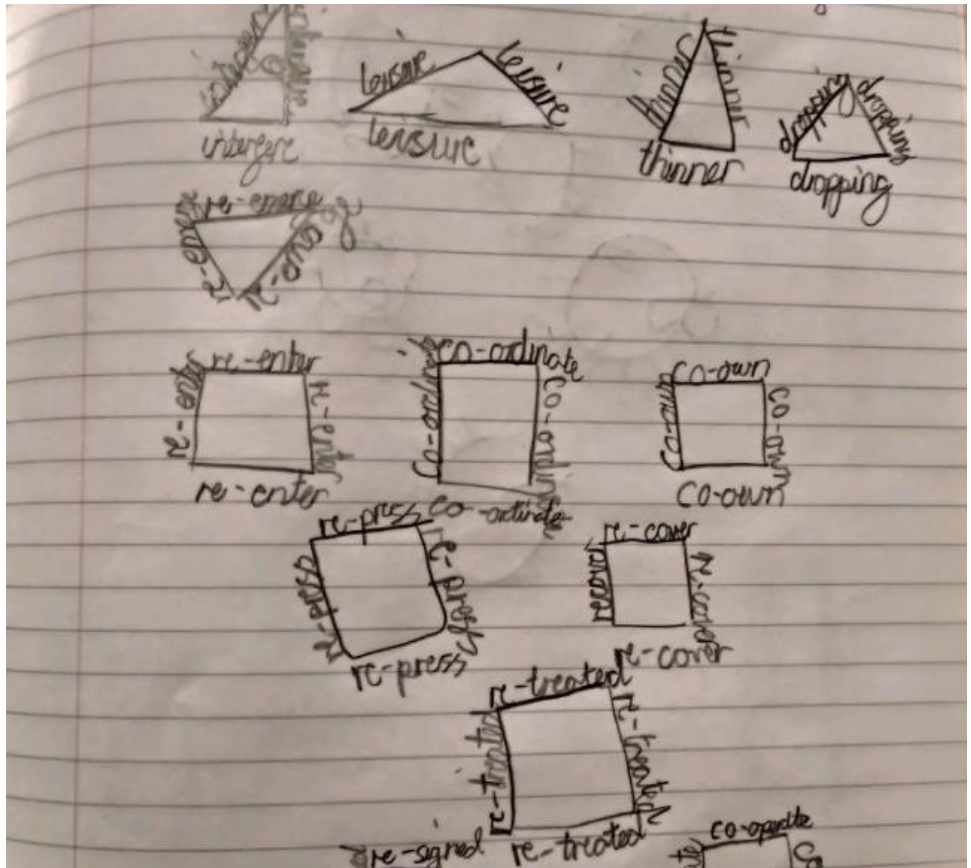 interfere
interfere
interfere
leisure
leisure
leisure
thinner
thinner
thinner
dropping
dropping
dropping
re-enter
re-enter
re-enter
re-enter
co-ordinate
co-ordinate
co-ordinate
co-ordinate
co-own
co-own
co-own
co-own
re-press
re-press
re-press
re-press
re-cover
recover
re-cover
re-cover
re-treated
re-treated
re-treated
re-treated
re-signed
co-operate